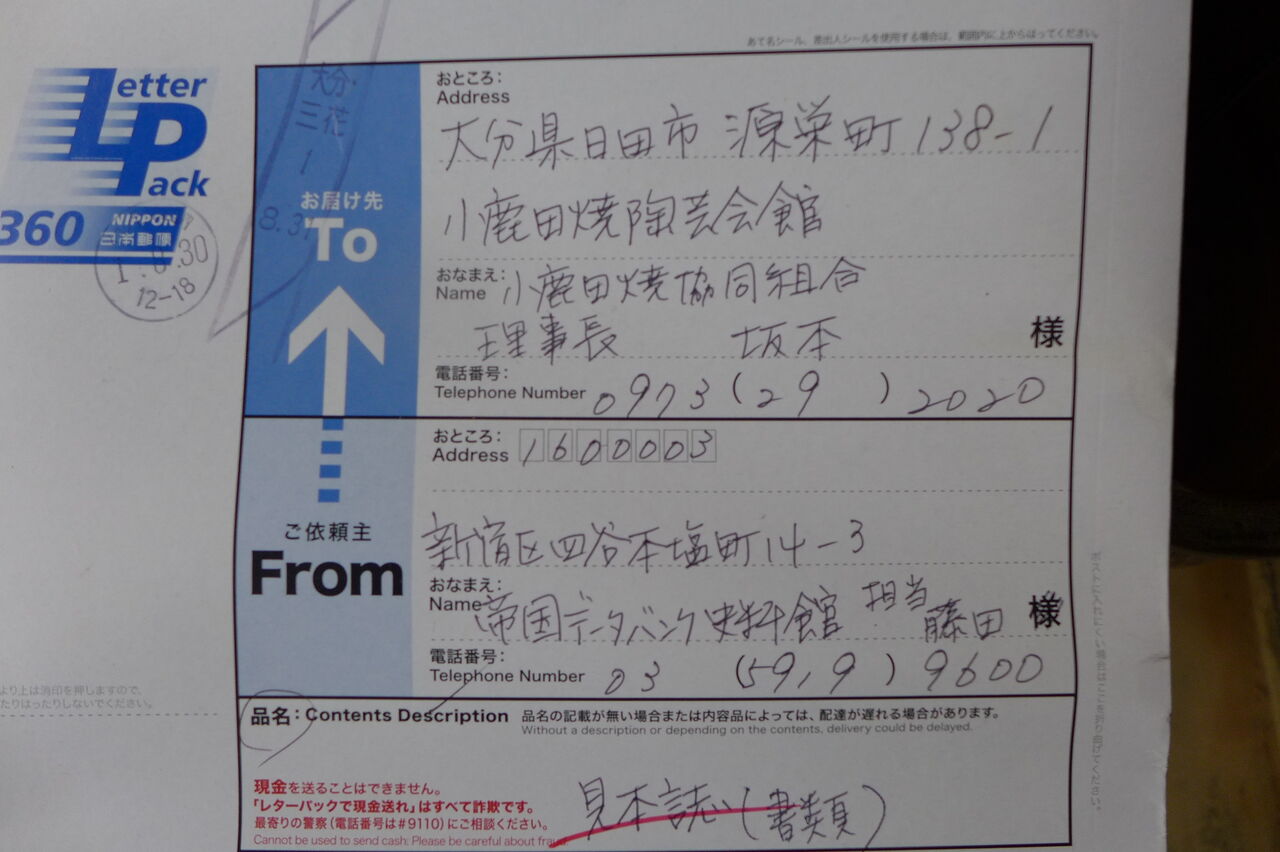 あて名シール、差出人シールを使用する場合は、範囲内に上からはってください。
Letter
Pack
360
NIPPON
日本郵便
12-18
大分・
三花
1
8.31
お届け先
To
おところ:
Address
大分県日田市 源栄町138-1
小鹿田焼陶芸会館
おなまえ:
Name 小鹿田焼協同組合
理事長 坂本 様
電話番号:
Telephone Number 0973(29)2020
ご依頼主
From
おところ:
Address 1600003
新宿区四谷本塩町14-3
おなまえ:
Name 帝国データバンク史料館 担当 藤田 様
電話番号:
Telephone Number 03 (5919) 9600
より上は消印を押しますので、
たりはったりしないでください。
品名: Contents Description 品名の記載が無い場合または内容品によっては、配達が遅れる場合があります。
Without a description or depending on the contents, delivery could be delayed.
現金を送ることはできません。
「レターパックで現金送れ」はすべて詐欺です。
最寄りの警察(電話番号は#9110)にご相談ください。
Cannot be used to send cash. Please be careful about fraud.
見本誌(書類)
ポストに入れにくい場合はここを折り曲げてください。